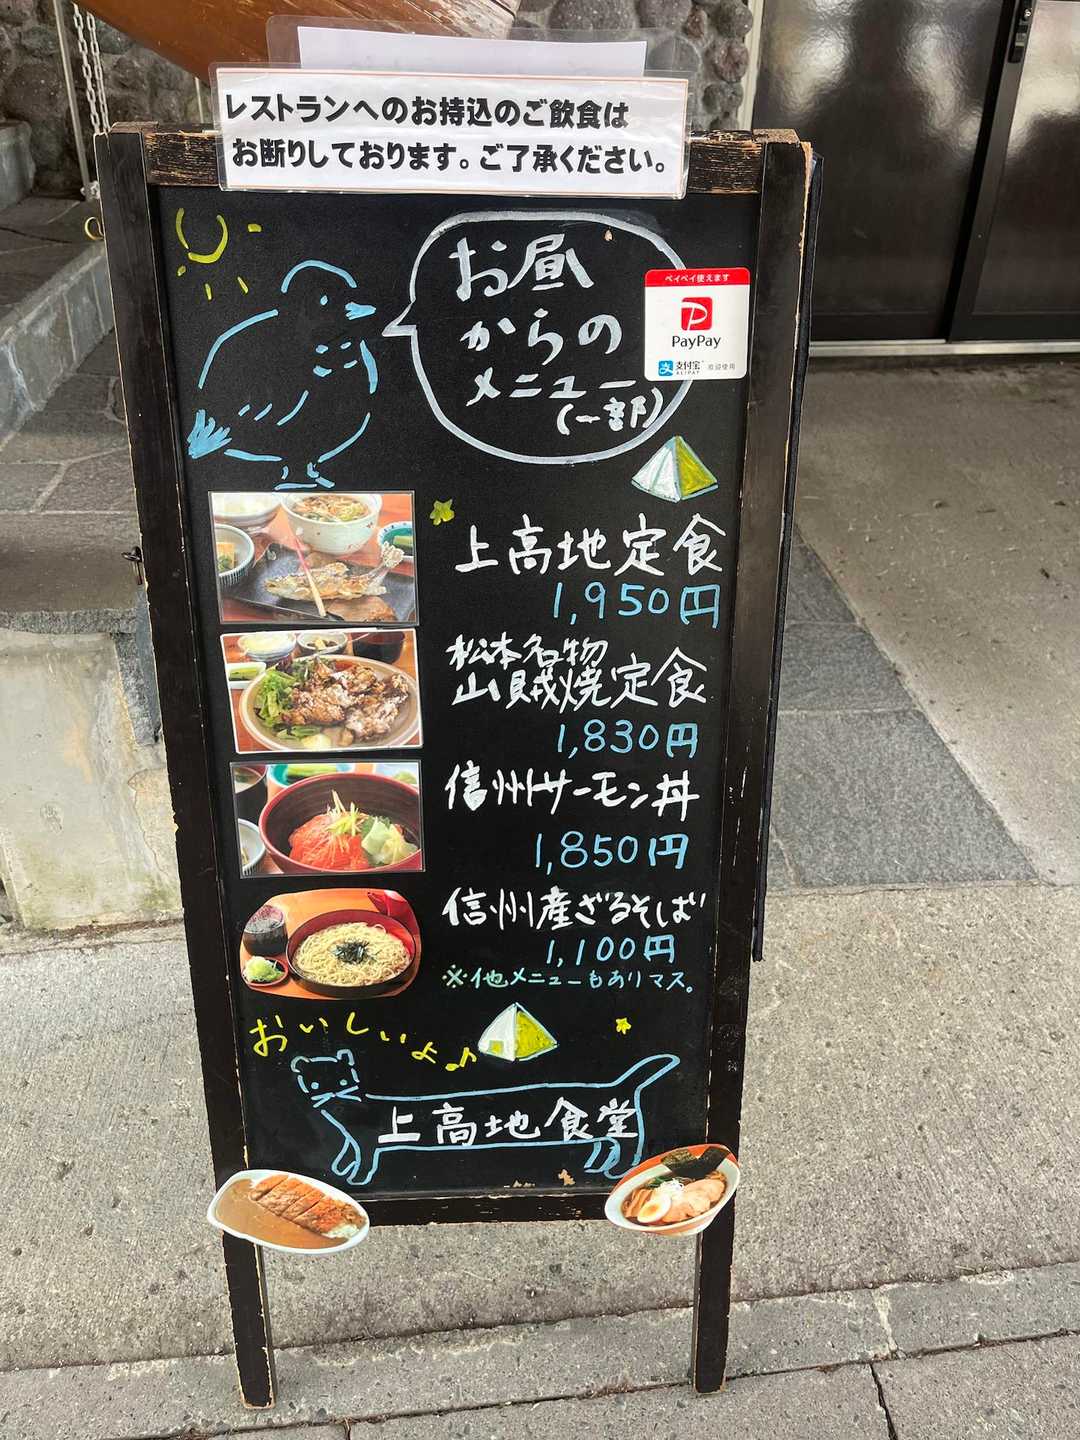 レストランへのお持込のご飲食は
お断りしております。ご了承ください。
お昼
からの
メニュー
(一部)
ペイペイ使えます
PayPay
支付宝
ALIPAY
欢迎使用
上高地定食
1,950円
松本名物
山賊焼定食
1,830円
信州サーモン丼
1,850円
信州産ざるそば
1,100円
※他メニューもありマス。
おいしいよ♪
上高地食堂